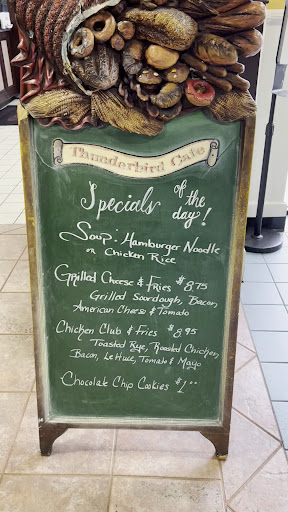 Thunderbird Cafe
Specials of the day!
Soup: Hamburger Noodle
or Chicken Rice
Grilled Cheese & Fries $8.75
Grilled Sourdough, Bacon,
American Cheese & Tomato
Chicken Club & Fries $8.95
Toasted Rye, Roasted Chicken,
Bacon, Lettuce, Tomato & Mayo
Chocolate Chip Cookies $1.00